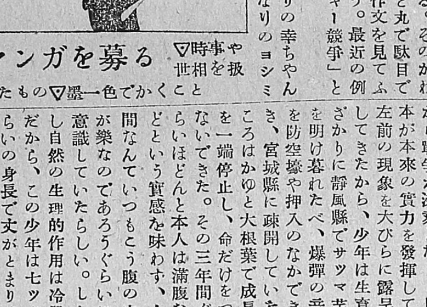 る。そのかわ
と丸で駄目で
作文を見てふ
う。最近の例
ャー競争」と
りの幸ちゃん
なりのヨシミ
マンガを募る
▽時事や
世相を扱
たもの▽墨一色でかくこと
本が本來の實力を発揮して
左前の現象を大びらに露呈
してきたから、少年は生育
ざかりに靜岡縣でサツマ芋
を明け暮れたべ、爆彈の音
を防空壕や押入のなかでき
き、宮城縣に疎開していた
ころはかゆと大根葉で成長
を一端停止し、命だけをつ
ないできた。その三年間
らいほとんど本人は滿腹な
どという實感を味わず、
間なんていつもこう腹の
が樂なのであろうぐらい
意識していたらしい。し
し自然の生理的作用は冷
だから、この少年は七ッ
らいの身長で丈がとまり